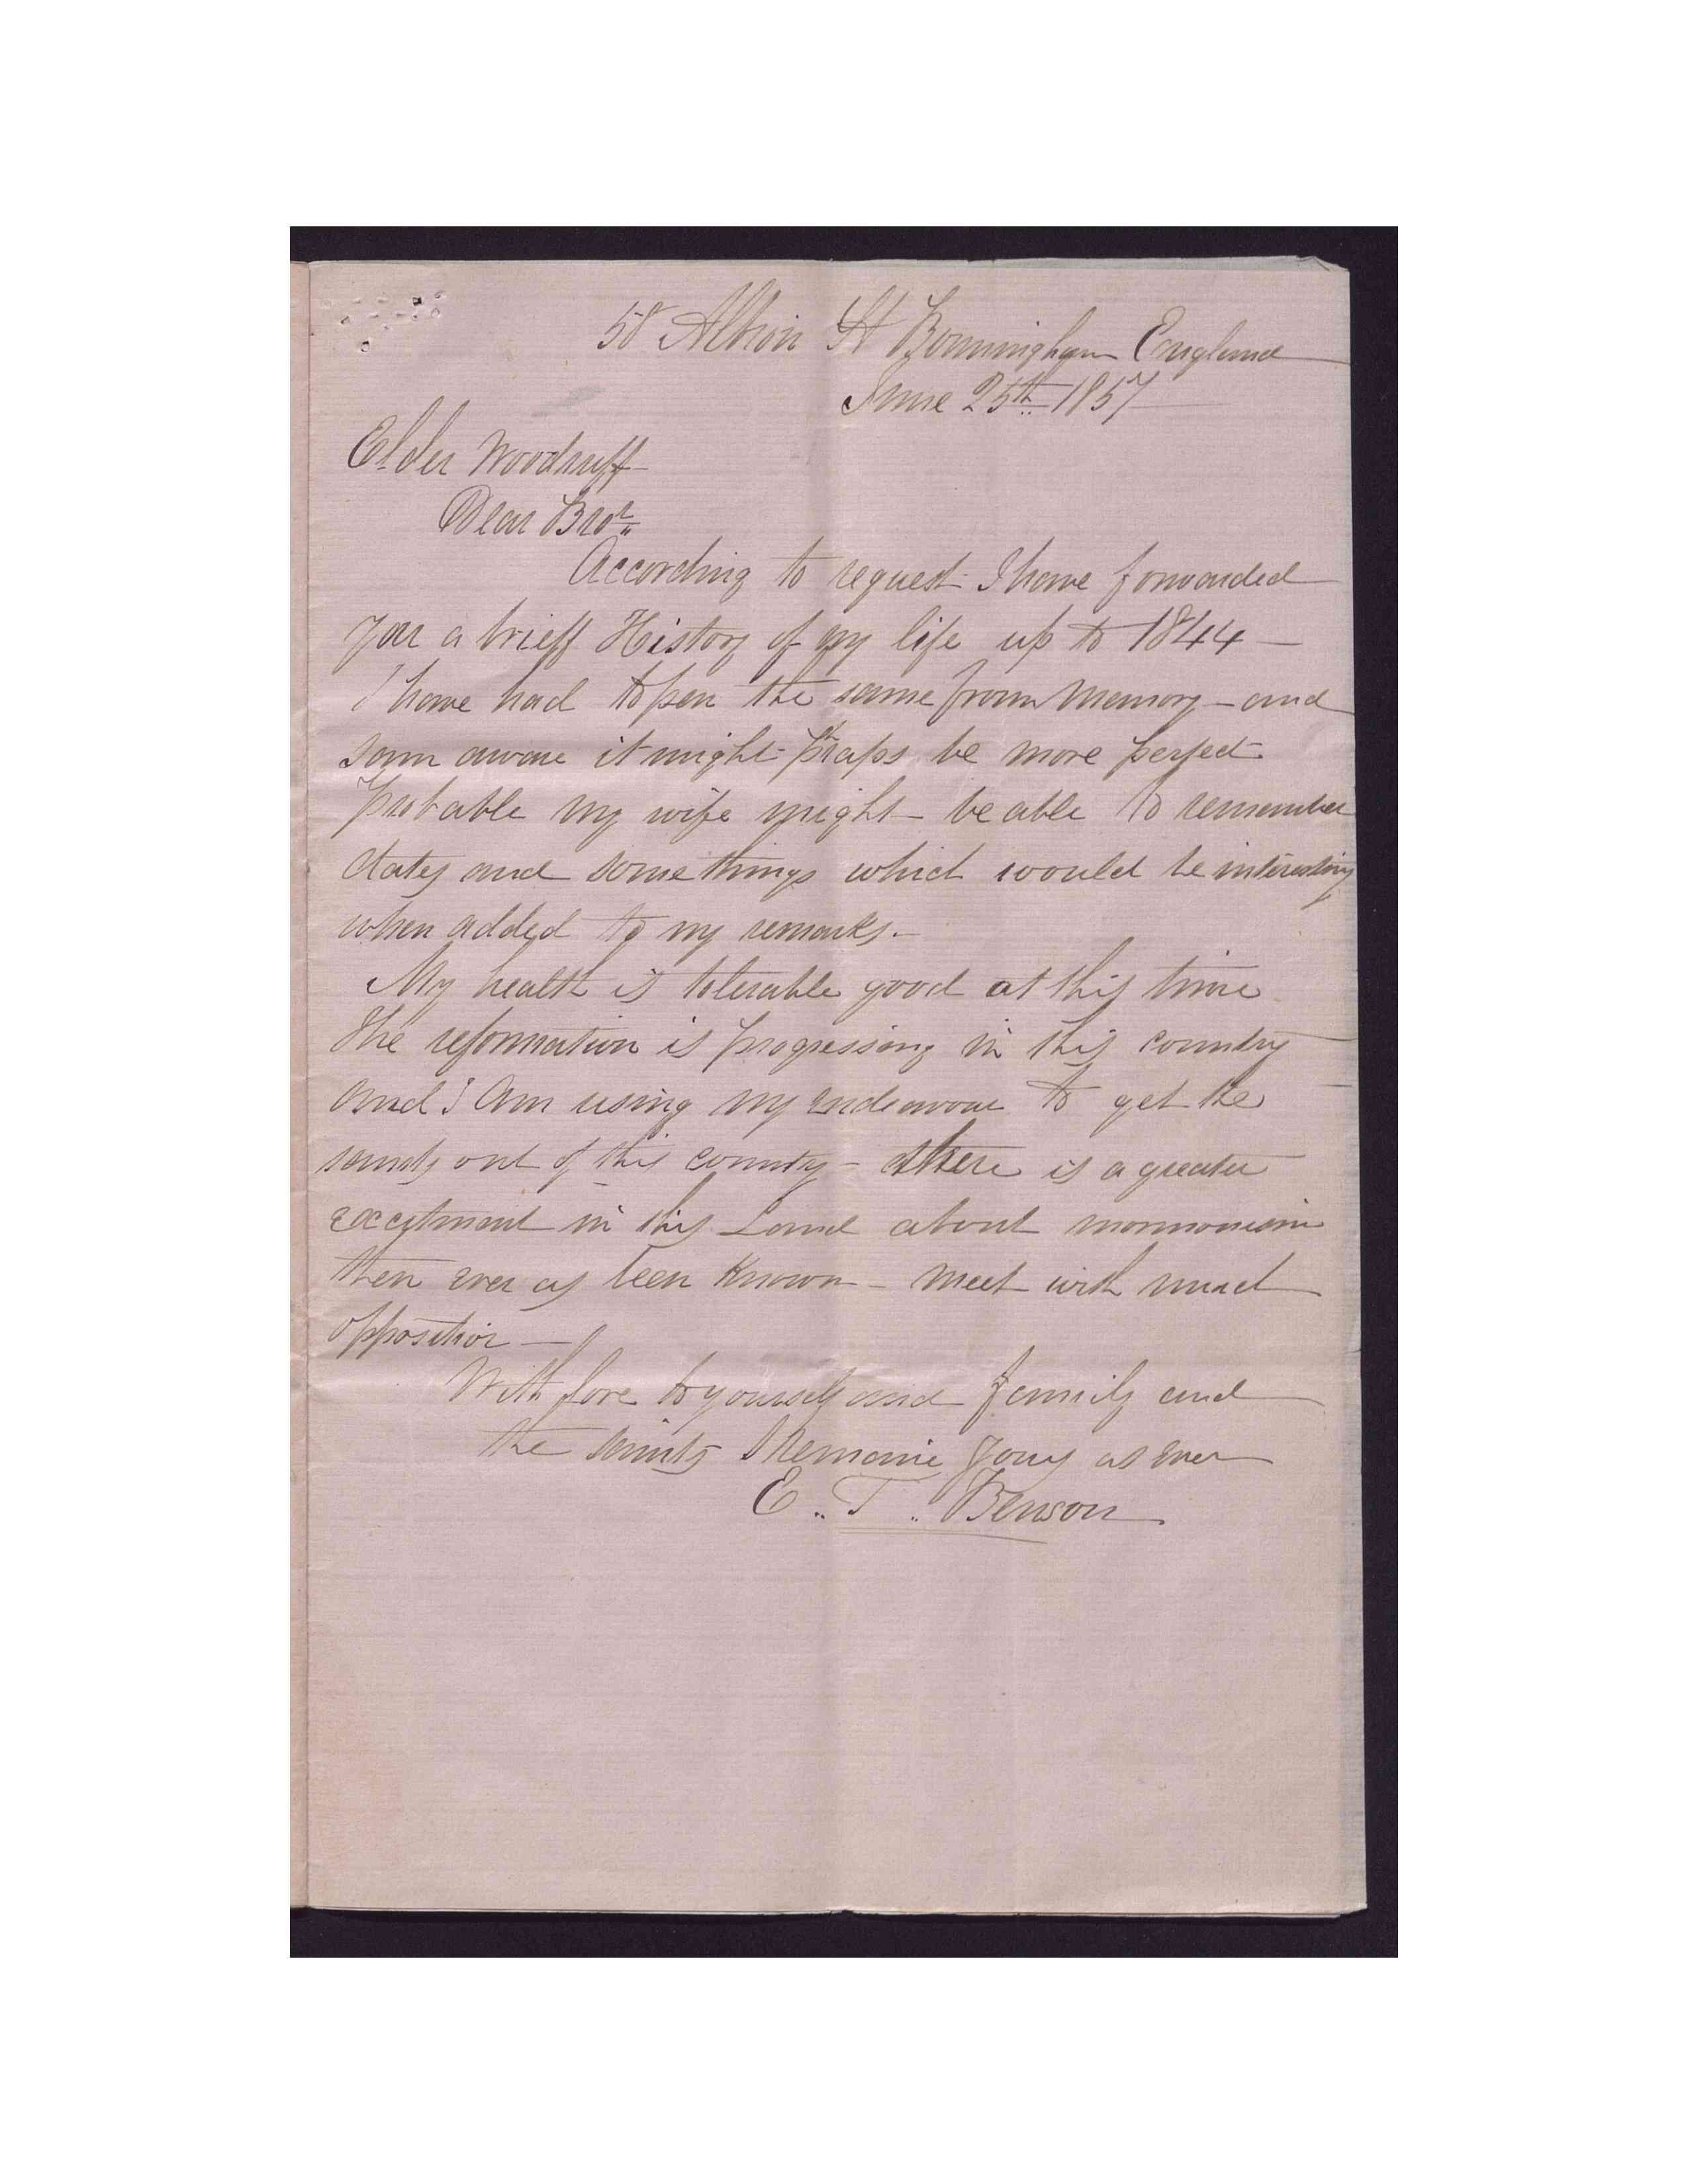 58 Albion St Bermingham England
June 25th 1857
Elder Woodruff
Dear Bror
According to request I have forwarded
you a brieff History of my life up to 1844 —
I have had to pen the same from memory – and
I am aware it might praps be more perfect
Probable my wife might – be able to remember
dates and some things which would be interesting
when added to my remarks. –
My health is tolerable good at this time
The reformation is progressing in this country
and I am using my endeavour to get the
saints out of this country – there is a greater
excitment in this Land about mormonism
then ever as been known – meet with much
opposition —
With love to yourself and family and
the saints I remaine yours as ever
E. T. Benson